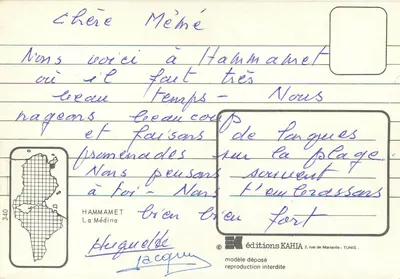 chère Mémé
Nous voici à Hammamet
où il fait très
beau temps - Nous
nageons beaucoup
et faisons de longues
promenades sur la plage.
Nous pensons souvent
à toi - Nous t'embrassons
bien bien fort
Huguette
Jacques
340
HAMMAMET
La Médina
© éditions KAHIA 3, rue de Marseille - TUNIS
modèle déposé
reproduction interdite